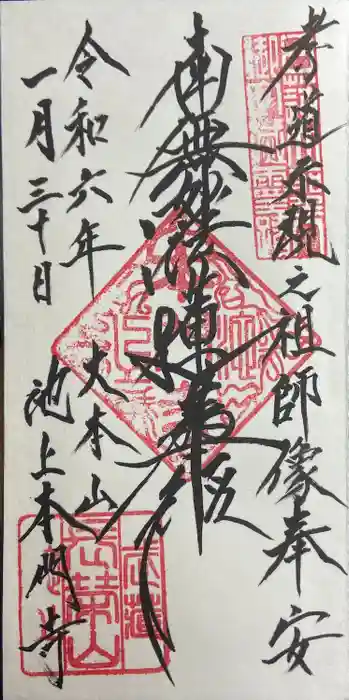 孝道示現之祖師像奉安
南無妙法蓮華経
令和六年
一月三十日
大本山
池上本門寺
長栄山